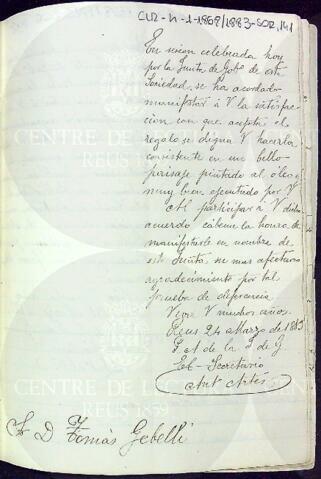 CLR-N-1-1868/1883-SOR, 141
En union celebrada hoy
por la Junta de Gobº de esta
Sociedad, se ha acordado
manifestar á V la satisfac
cion con que acepta el
regalo se digna V hacerla
consistente en un bello
paisaje pintado al óleo y
muy bien ejecutado por V
Al participar á V dicho
acuerdo cábeme la honra de
manifestarle en nombre de
esta Junta, su mas afectuoso
agradecimiento por tal
prueba de deferencia
Viva V muchos años.
Reus 24 Marzo de 1883
P. A de la J de G.
El Secretario
Ant Artés
Sr D Tomás Gebellí
CENTRE DE LECTURA
REUS 1859